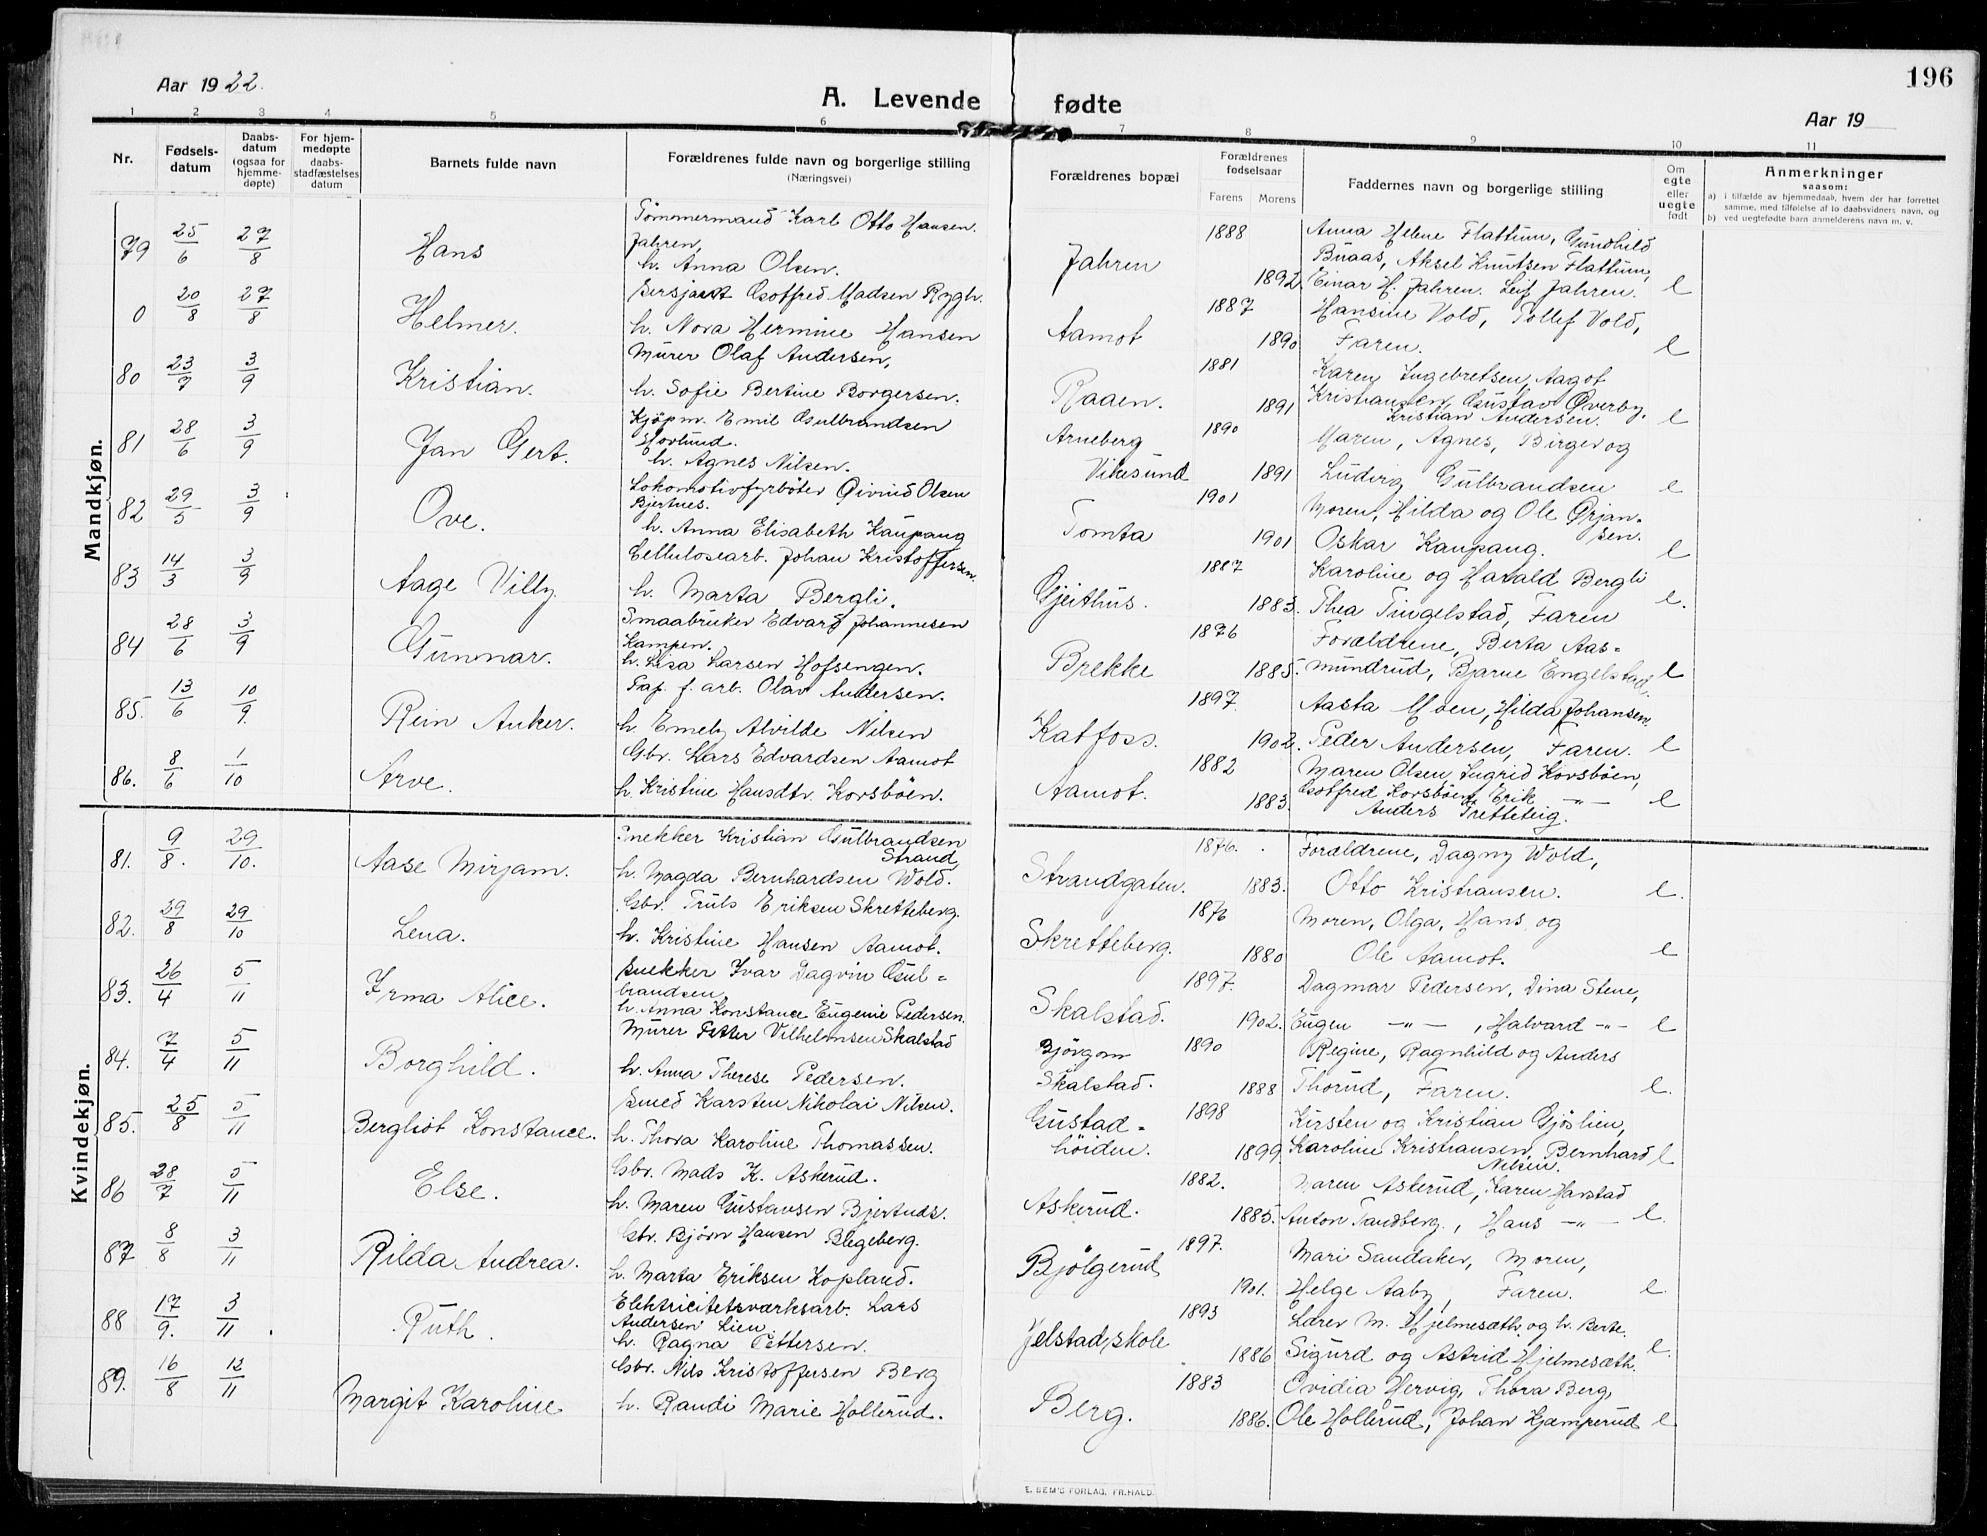 196
Aar 1922.
A. Levende fødte
Aar 19
1 2 3 4 5 6 7 8 9 10 11
Nr.
Fødsels-
datum
Daabs-
datum
(ogsaa for
hjemme-
døpte)
For hjem-
medøpte
daabs-
stadfæstelses
datum
Barnets fulde navn
Forældrenes fulde navn og borgerlige stilling
(Næringsvei)
Forældrenes bopæl
Forældrenes
fødselsaar
Farens Morens
Faddernes navn og borgerlige stilling
Om
egte
eller
uegte
født
Anmerkninger
saasom:
a) i tilfælde av hjemmedaab, hvem der har forrettet
samme, med tilføielse af to daabsvidners navn, og
b) ved uegtefødte barn anmelderens navn m. v.
Mandkjøn.
79 25/6 27/8 Hans
Tömmermand Karl Otto Hansen
Jahren,
h. Anna Olsen.
Jahren 1888 1892
Anna Helene Flattum, Gundhild
Buaas, Aksel Knutsen Flattum,
Einar H. Jahren. Leif Jahren. e
0 20/8 27/8 Helmer.
Sersjant Gotfred Madsen Rygh.
h. Nora Hermine Hansen
Aamot 1887 1890
Hansine Vold, Tollef Vold,
Faren. e
80 23/7 3/9 Kristian.
Murer Olaf Andersen,
h. Sofie Bertine Borgersen.
Raaen. 1881 1891
Karen Ingebretsen, Aagot
Kristiansen, Gustav Øverby,
Kristian Andersen. e
81 28/6 3/9 Jan Gert.
Kjöpm. Emil Gulbrandsen
Hovlund.
h. Agnes Nilsen.
Arneberg
Vikesund 1890 1891
Maren, Agnes, Birger og
Ludvig Gulbrandsen e
82 29/5 3/9 Ove.
Lokomotivfyrböter Öivind Olsen
Bjertnes.
h. Anna Elisabeth Kaupang
Tomta 1901 1901
Moren, Hilda og Ole Ørjan-
sen.
Oskar Kaupang. e
83 14/3 3/9 Aage Villy
Cellulosearb. Johan Kristoffersen.
h. Marta Bergli.
Gjeithus. 1887 1883.
Karoline og Harald Bergli
Thea Tingelstad, Faren e.
84 28/6 3/9 Gunnar.
Smaabruker Edvard Johannesen
Kampen.
h. Lisa Larsen Hofsengen.
Brekke 1876 1885.
Forældrene, Berta Aas-
mundrud, Bjarne Engelstad. e
85. 13/6 10/9. Rein Anker.
Pap. f. arb. Olav Andersen.
h. Emely Alvilde Nilsen
Katfoss. 1897. 1902.
Aasta Moen, Hilda Johansen.
Peder Andersen, Faren. e
86. 8/6 1/10 Arve.
Gbr. Lars Edvardsen Aamot
h. Kristine Hansdtr. Korsböen.
Aamot. 1882 1883.
Maren Olsen, Ingrid Korsböen,
Gotfred Korsböen, Erik -"-
Anders Tretteteig. e
Kvindekjøn.
81. 9/8. 29/10. Aase Mirjam.
Snekker Kristian Gulbrandsen
Strand
h. Magda Bernhardsen Wold.
Strandgaten. 1876. 1883.
Forældrene, Dagny Wold,
Otto Kristiansen. e.
82. 29/8 29/10 Lena.
Gbr. Truls Eriksen Skretteberg.
h. Kristine Hansen Aamot.
Skretteberg. 1876 1880
Moren, Olga, Hans og
Ole Aamot. e
83. 26/4 5/11 Irma Alice.
Snekker Ivar Dagvin Gul-
brandsen
h. Anna Konstance Eugenie Pedersen.
Skalstad. 1897. 1902.
Dagmar Pedersen, Dina Stene,
Eugen -"-, Halvard -"- e
84. 7/4 5/11 Borghild.
Murer Petter Vilhelmsen Skalstad
h. Anna Therese Pedersen.
Skalstad. 1890 1888
Regine, Ragnhild og Anders
Thorud, Faren. e.
85. 25/8 5/11 Bergliot Konstance.
Smed Karsten Nikolai Nilsen.
h. Thora Karoline Thomassen.
Gustad-
höiden. 1898 1899
Kirsten og Kristian Gjöslien,
Karoline Kristiansen, Bernhard
Nilsen. e
86 28/7 5/11 Else.
Gbr. Mads K. Askerud.
h. Maren Gustavsen Bjertnæs.
Askerud. 1882. 1885.
Maren Askerud, Karen Harstad
Anton Tandberg, Hans -"- e.
87 8/8 3/11 Rilda Andrea.
Gbr. Bjørn Hansen Blegeberg.
h. Marta Eriksen Kopland.
Bjölgerud 1897. 1901.
Mari Sandaker, Moren,
Helge Aaby, Faren. e.
88 17/9. 3/11 Ruth.
Elektricitetsværksarb. Lars
Andersen Lien.
h. Ragna Pettersen.
Jelstad, skole 1893 1886
Lærer M. Hjelmesæth og h. Berte.
Sigurd og Astrid Hjelmesæth. e.
89. 16/8 12/11 Margit Karoline
Gbr. Nils Kristoffersen Berg
h. Randi Marie Hollerud.
Berg. 1883 1886.
Ovidia Hervig, Thora Berg,
Ole Hollerud, Johan Kjæmperud e
E. SEM'S FORLAG, FR.HALD.